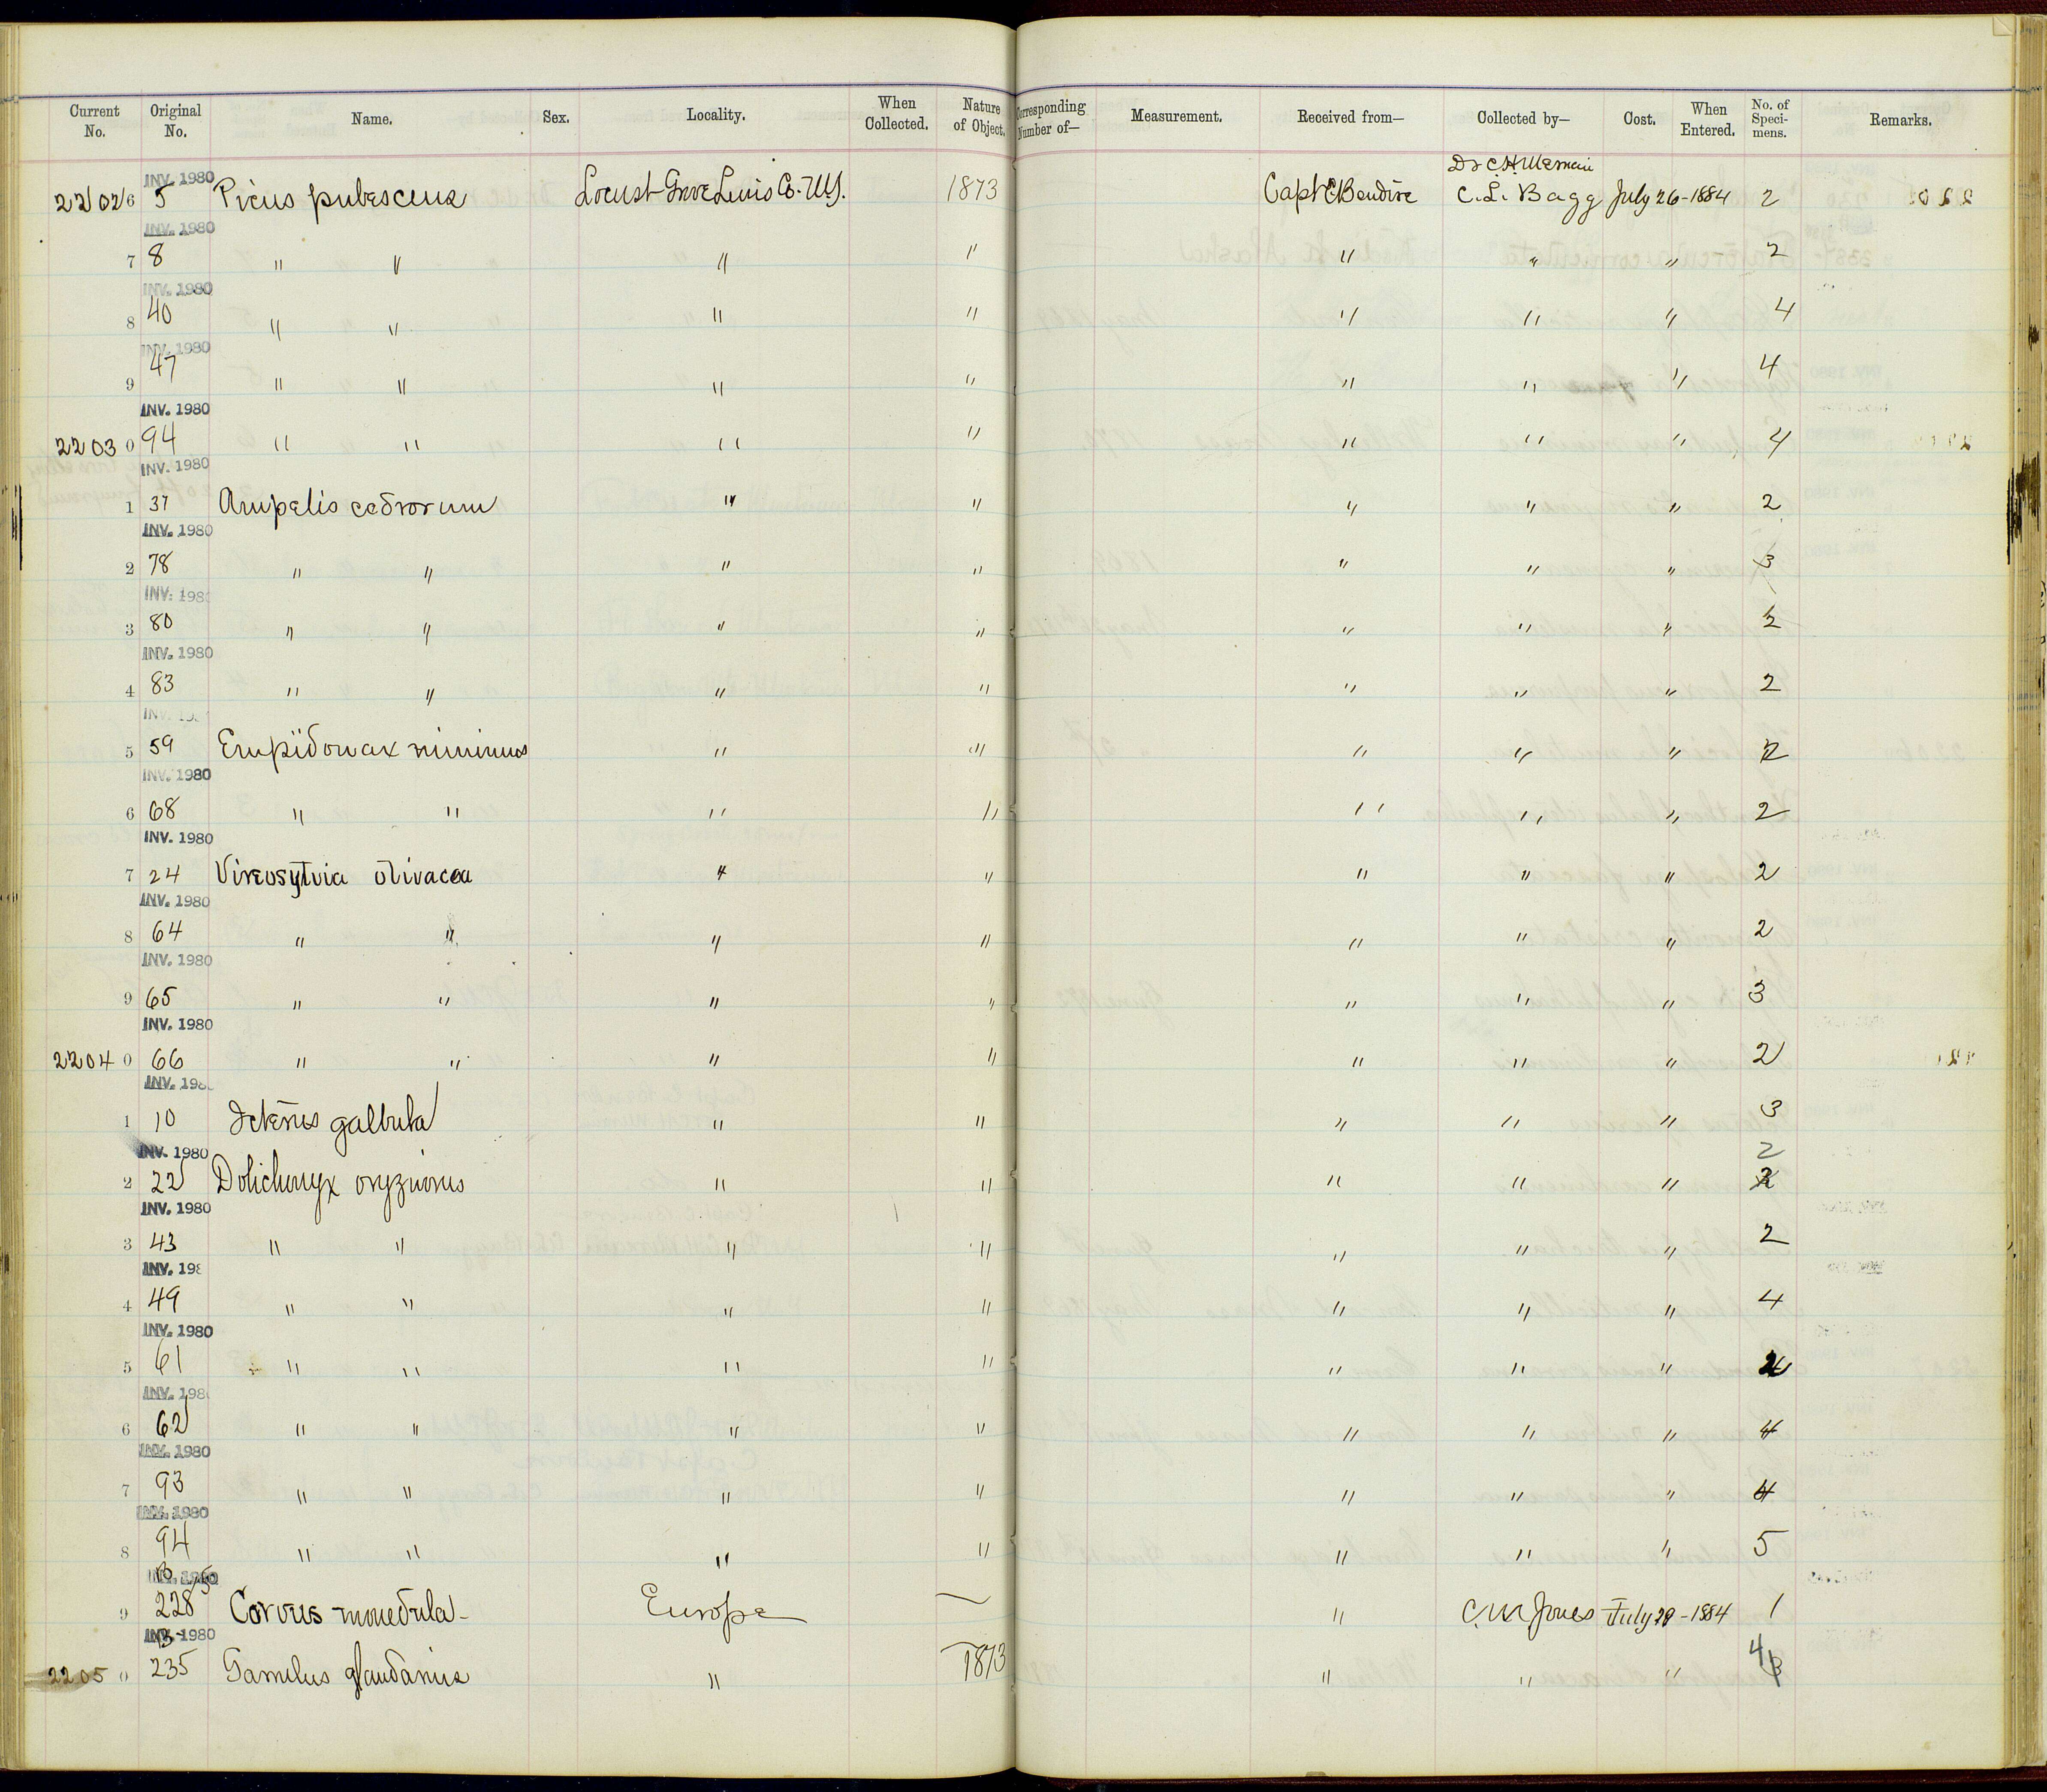 Current No. Original No. Name. Sex. Locality. When Collected. Nature of Object. Corresponding Number of— Measurement. Received from— Collected by— Cost. When Entered. No. of Speci-mens. Remarks.
INV. 1980
22026 5 Picus pubescens Locust Grove Lewis Co. 1873 Capt C Bendire C. L. Bagg July 26-1884 2
INV. 1980
7 8 " " " " " " " 2
INV. 1980
8 40 " " " " " " " 4
INV. 1980
9 47 " " " " " " " 4
INV. 1980
22030 94 " " " " " " " 4
INV. 1980
1 37 Ampelis cedrorum " " " " " 2
INV. 1980
2 78 " " " " " " " 3
INV. 1980
3 80 " " " " " " " 2
INV. 1980
4 83 " " " " " " " 2
INV. 198
5 59 Empidonax minimus " " " " " 2
INV. 1980
6 68 " " " " " " " 2
INV. 1980
7 24 Vireosylvia olivacea " " " " " 2
INV. 1980
8 64 " " " " " " " 2
INV. 1980
9 65 " " " " " " " 3
INV. 1980
22040 66 " " " " " " " 2
INV. 198
1 10 Icterus galbula " " " " " 3
INV. 1980 2
2 22 Dolichonyx oryzivorus " " " " "
INV. 1980
3 43 " " " " " " " 2
INV. 198
4 49 " " " " " " " 4
INV. 1980
5 61 " " " " " " "
INV. 198
6 62 " " " " " " " 4
INV. 1980
7 93 " " " " " " " 4
INV. 1980
8 94 " " " " " " " 5
INV. 1980
9 228 Corvus monedula Europe — " C. M. Jones July 29-1884 1
INV. 1980
22050 235 Garrulus glandarius " 1873 " " " 4